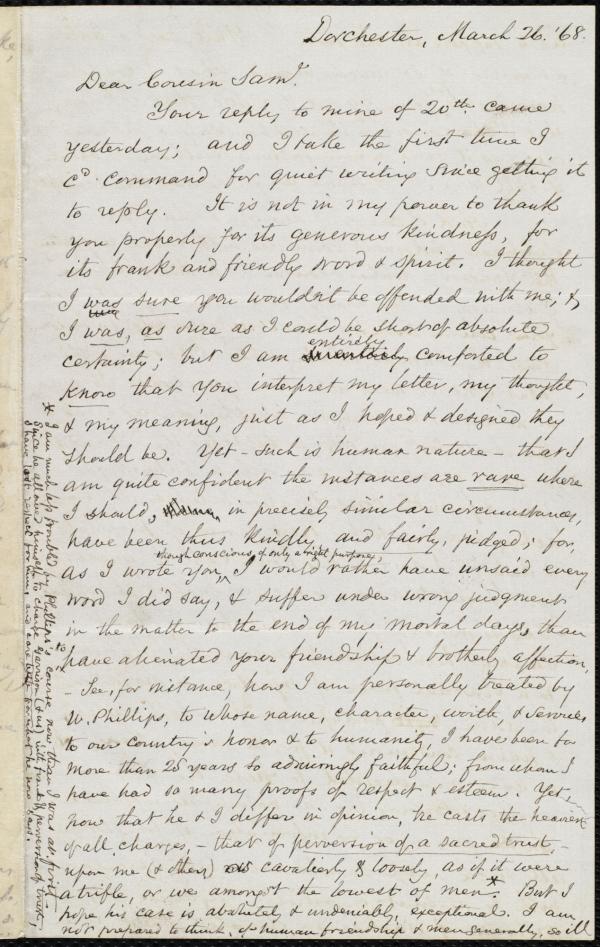 Dorchester, March 26. '68.
Dear Cousin Saml.
Your reply to mine of 20th. came
yesterday; and I take the first time I
cd. command for quiet writing since getting it
to reply. It is not in my power to thank
you properly for its generous kindness, for
its frank and friendly word & spirit. I thought
I was sure you wouldn't be offended with me; &
I was, as sure as I could be short of absolute
entirely
certainty; but I am comforted to
know that you interpret my letter, my thought,
& my meaning, just as I hoped & designed they
should be. Yet - such is human nature - that I
am quite confident the instances are rare where
I should, in precisely similar circumstances,
have been thus kindly and fairly, judged; for,
though conscious of only a right purpose,
as I wrote you, ^ I would rather have unsaid every
word I did say, & suffer under wrong judgment
in the matter to the end of my mortal days, than
to
have alienated your friendship & brotherly affection,
- See, for instance, how I am personally treated by
W. Phillips, to whose name, character, worth, & services
to our country's honor & to humanity, I have been for
more than 25 years so admiringly faithful; from whom I
have had so many proofs of respect & esteem. Yet,
now that he & I differ in opinion, he casts the heaviest
of all charges, - that of perversion of a sacred trust, -
upon me (& others) as cavalierly & loosely, as if it were
a trifle, or we amongst the lowest of men.* But I
hope his case is absolutely & undeniably, exceptional. I am
not prepared to think, of human friendship & men generally, so ill
* I am much less troubled by Phillips's course now than I was at first.
Since he allowed himself to charge Garrison (& us) with fraud & perversion of trust,
I have lost respect for him, and care little for what he now says.